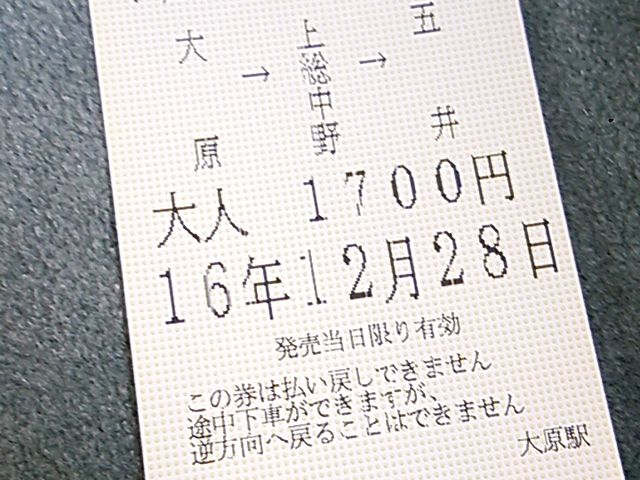 大原 → 上総中野 → 五井
大人 1700円
16年12月28日
発売当日限り有効
この券は払い戻しできません
途中下車ができますが、
逆方向へ戻ることはできません
大原駅